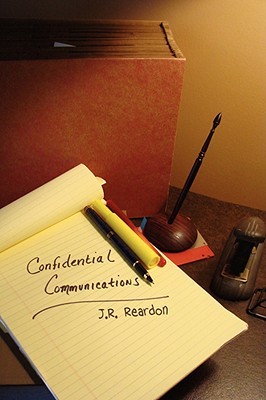 Confidential
Communications
J.R. Reardon